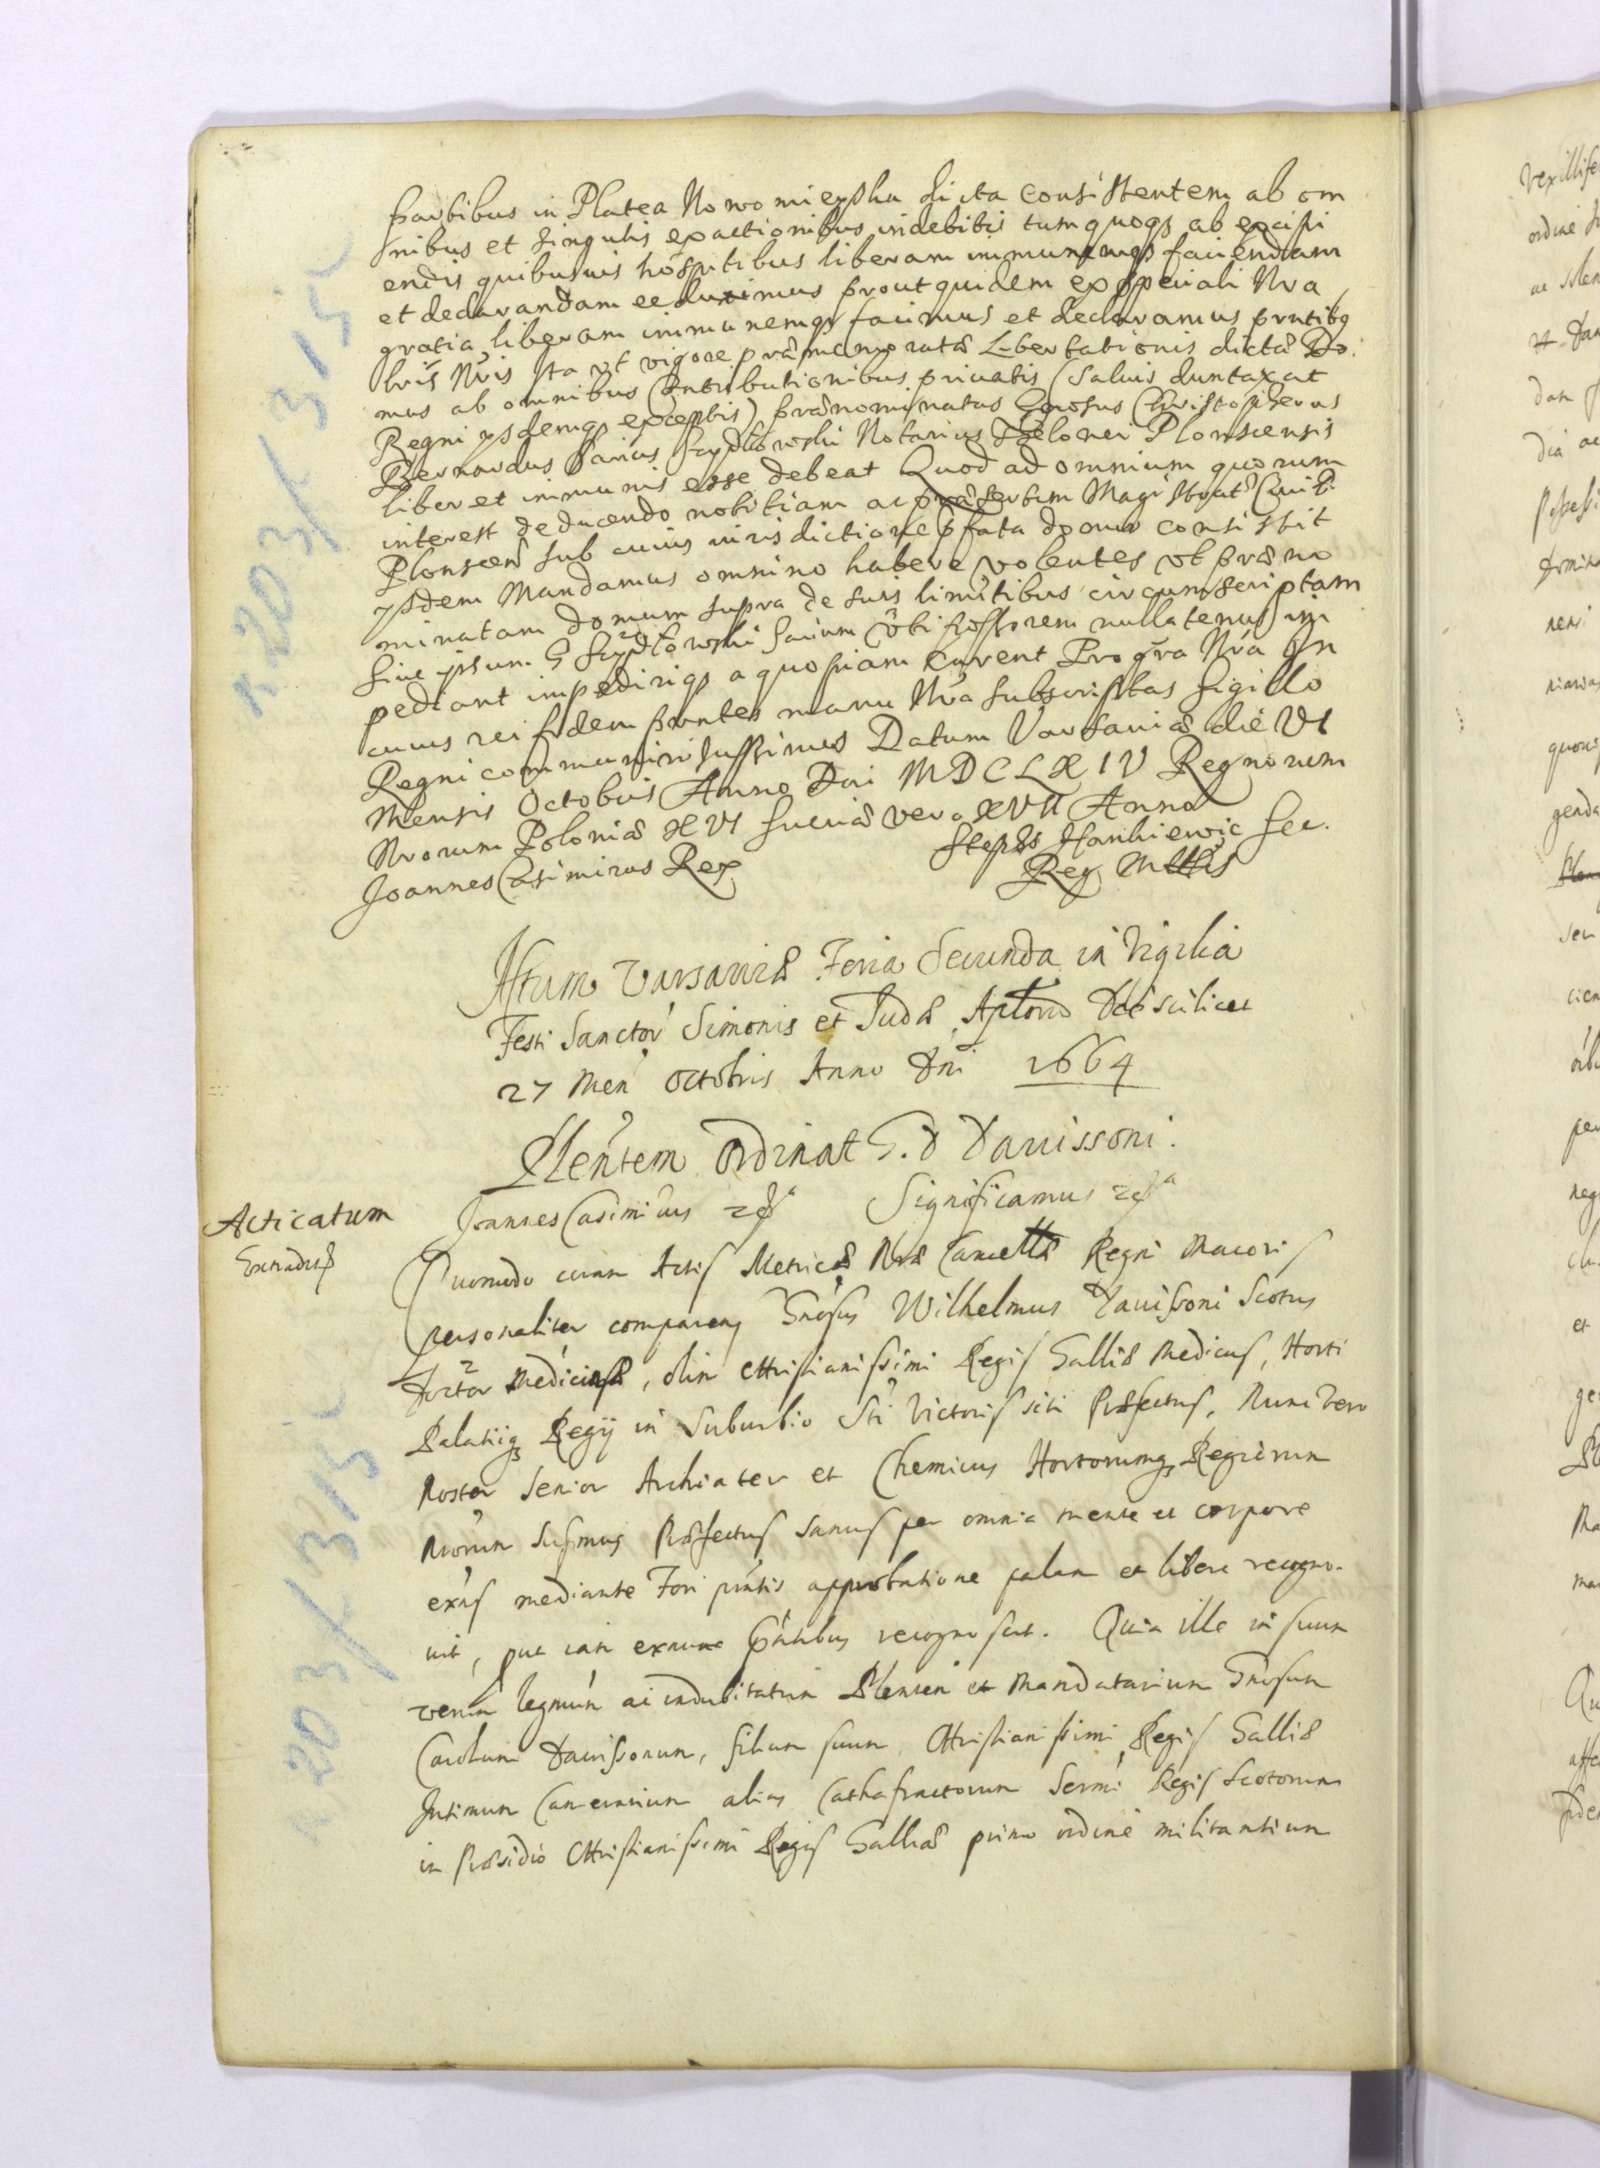 partibus in Platea Nowomieyska dicta consistentem ab om
nibus et singulis exactionibus indebitis tum quoqз ab excipi
endis quibusuis hospitibus liberam immunemqз faciendam
et declarandam ee duximus prout quidem ex speciali Nra
gratia liberam immunemqз facimus et declaramus prntibз
lris Nris Ita vt vigore præmemoratæ Libertationis dictæ Do
mus ab omnibus Contributionibus priuatis (saluis duntaxat
Regni ysdemqз exceptis) prænominatus Gnosus Christopherus
Bernardus Notarius Thelonei Plonscensis
liber et immunis esse debeat Quod ad omnium quorum
interest deducendo notitiam ac præsertim Magistratᵘ Ciuit
Plonscen sub cuius iurisdictione pfata domus consistit
ysdem Mandamus omnino habere volentes vt præno
minatam domum supra de suis limitibus circumscriptam
siue ipsum G vti possorem nullatenus im
pediant impediriqз a quopiam curent Pro gra Nra In
cuius rei fidem prntes manu Nra subscriptas sigillo
Regni communiri iussimus Datum Varsauiæ die VI
Mensis Octobris Anno Dni MDCLXIV Regnorum
Nrorum Poloniæ XVI Sueciæ vero XVII Anno
Joannes Casimirus Rex Stephs Hankiewic Sec.
Reg Mttis
Actum Varsauiæ Feria Secunda in Vigilia
Festi Sanctor Simonis et Judæ Aplorum die scilicet
27 Men Octobris Anno Dni 1664
Plentem ordinat G. D Dauissoni.
Acticatum
Joannes Casimirus Significamus
Quomodo coram Actis Metrices Nræ Cancellæ Regni Maioris
personaliter comparens Gnosus Wilhelmus Dauissoni Scotus
Doctor Medicinæ, olim Christianissimi Regis Galliæ Medicus, Horti
Palatiiqз Regij in Suburbio Sti Victoris siti Præfectus, Nunc Vero
Noster Senior Archiater et Chemicus Hortorumqз Regiorum
Nrorum Præfectus sanus per omnia mente et corpore
exns mediante Fori prntis approbatione palam et libere recogno-
uit, put iam exnunc pntibus recognoscit. Quia ille in suum
verum legmum ac indubitatum Plentem et Mandatarium Gnosum
Carolum Dauissonum, filium suum, Christianissimi Regis Galliæ
Intimum Camerarium alias Cathafractorum Sermi Regis Scotorum
in Præsidio Christianissimi Regis Galliæ primo ordine militantium